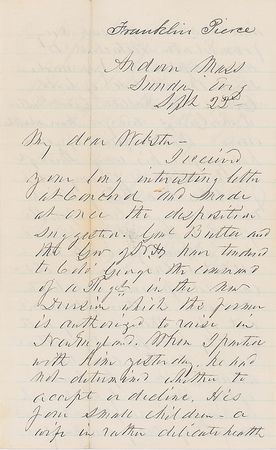 Franklin Pierce
Andover Mass
Sunday Evg
Sept 22nd
My dear Webster—
I received
your long interesting letter
at Concord and made
at once the disposition
suggested. Genl Butler and
the Gov of N.H. have tendered
to Colo George the command
of a Regt in the new
Division which the former
is authorized to raise in
New England. When I parted
with him yesterday he had
not determined whether to
accept or decline. His
four small children— a
wife in rather delicate health